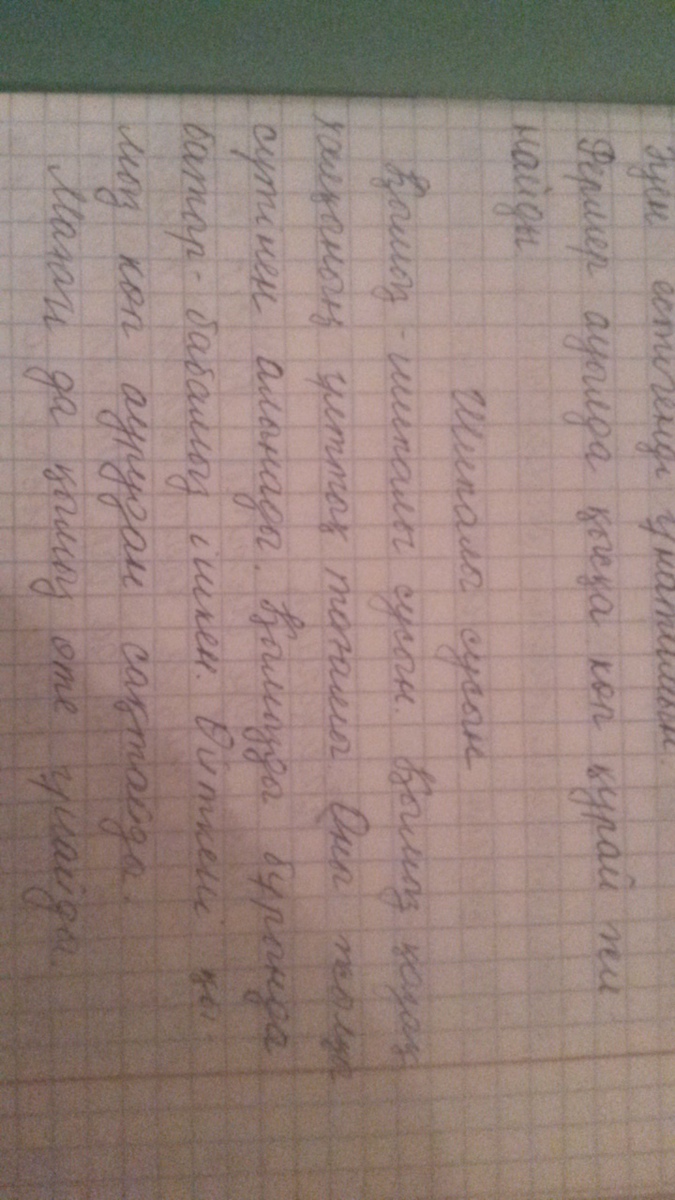 ұнатамын.
Фермер ауылда қысқа коп құрай жи
найды
Шипалы сусын
Қымыз - шипалы сусын. Қымыз қазақ
халқының ұлттық тағамы. Оны жылқы
сүтінен алынады. Қымызды бұрында
батыр-бабамыз ішкен. Өйткені қы-
мыз коп аурудан сақтайды.
Маған да қымыз оте ұнайды.